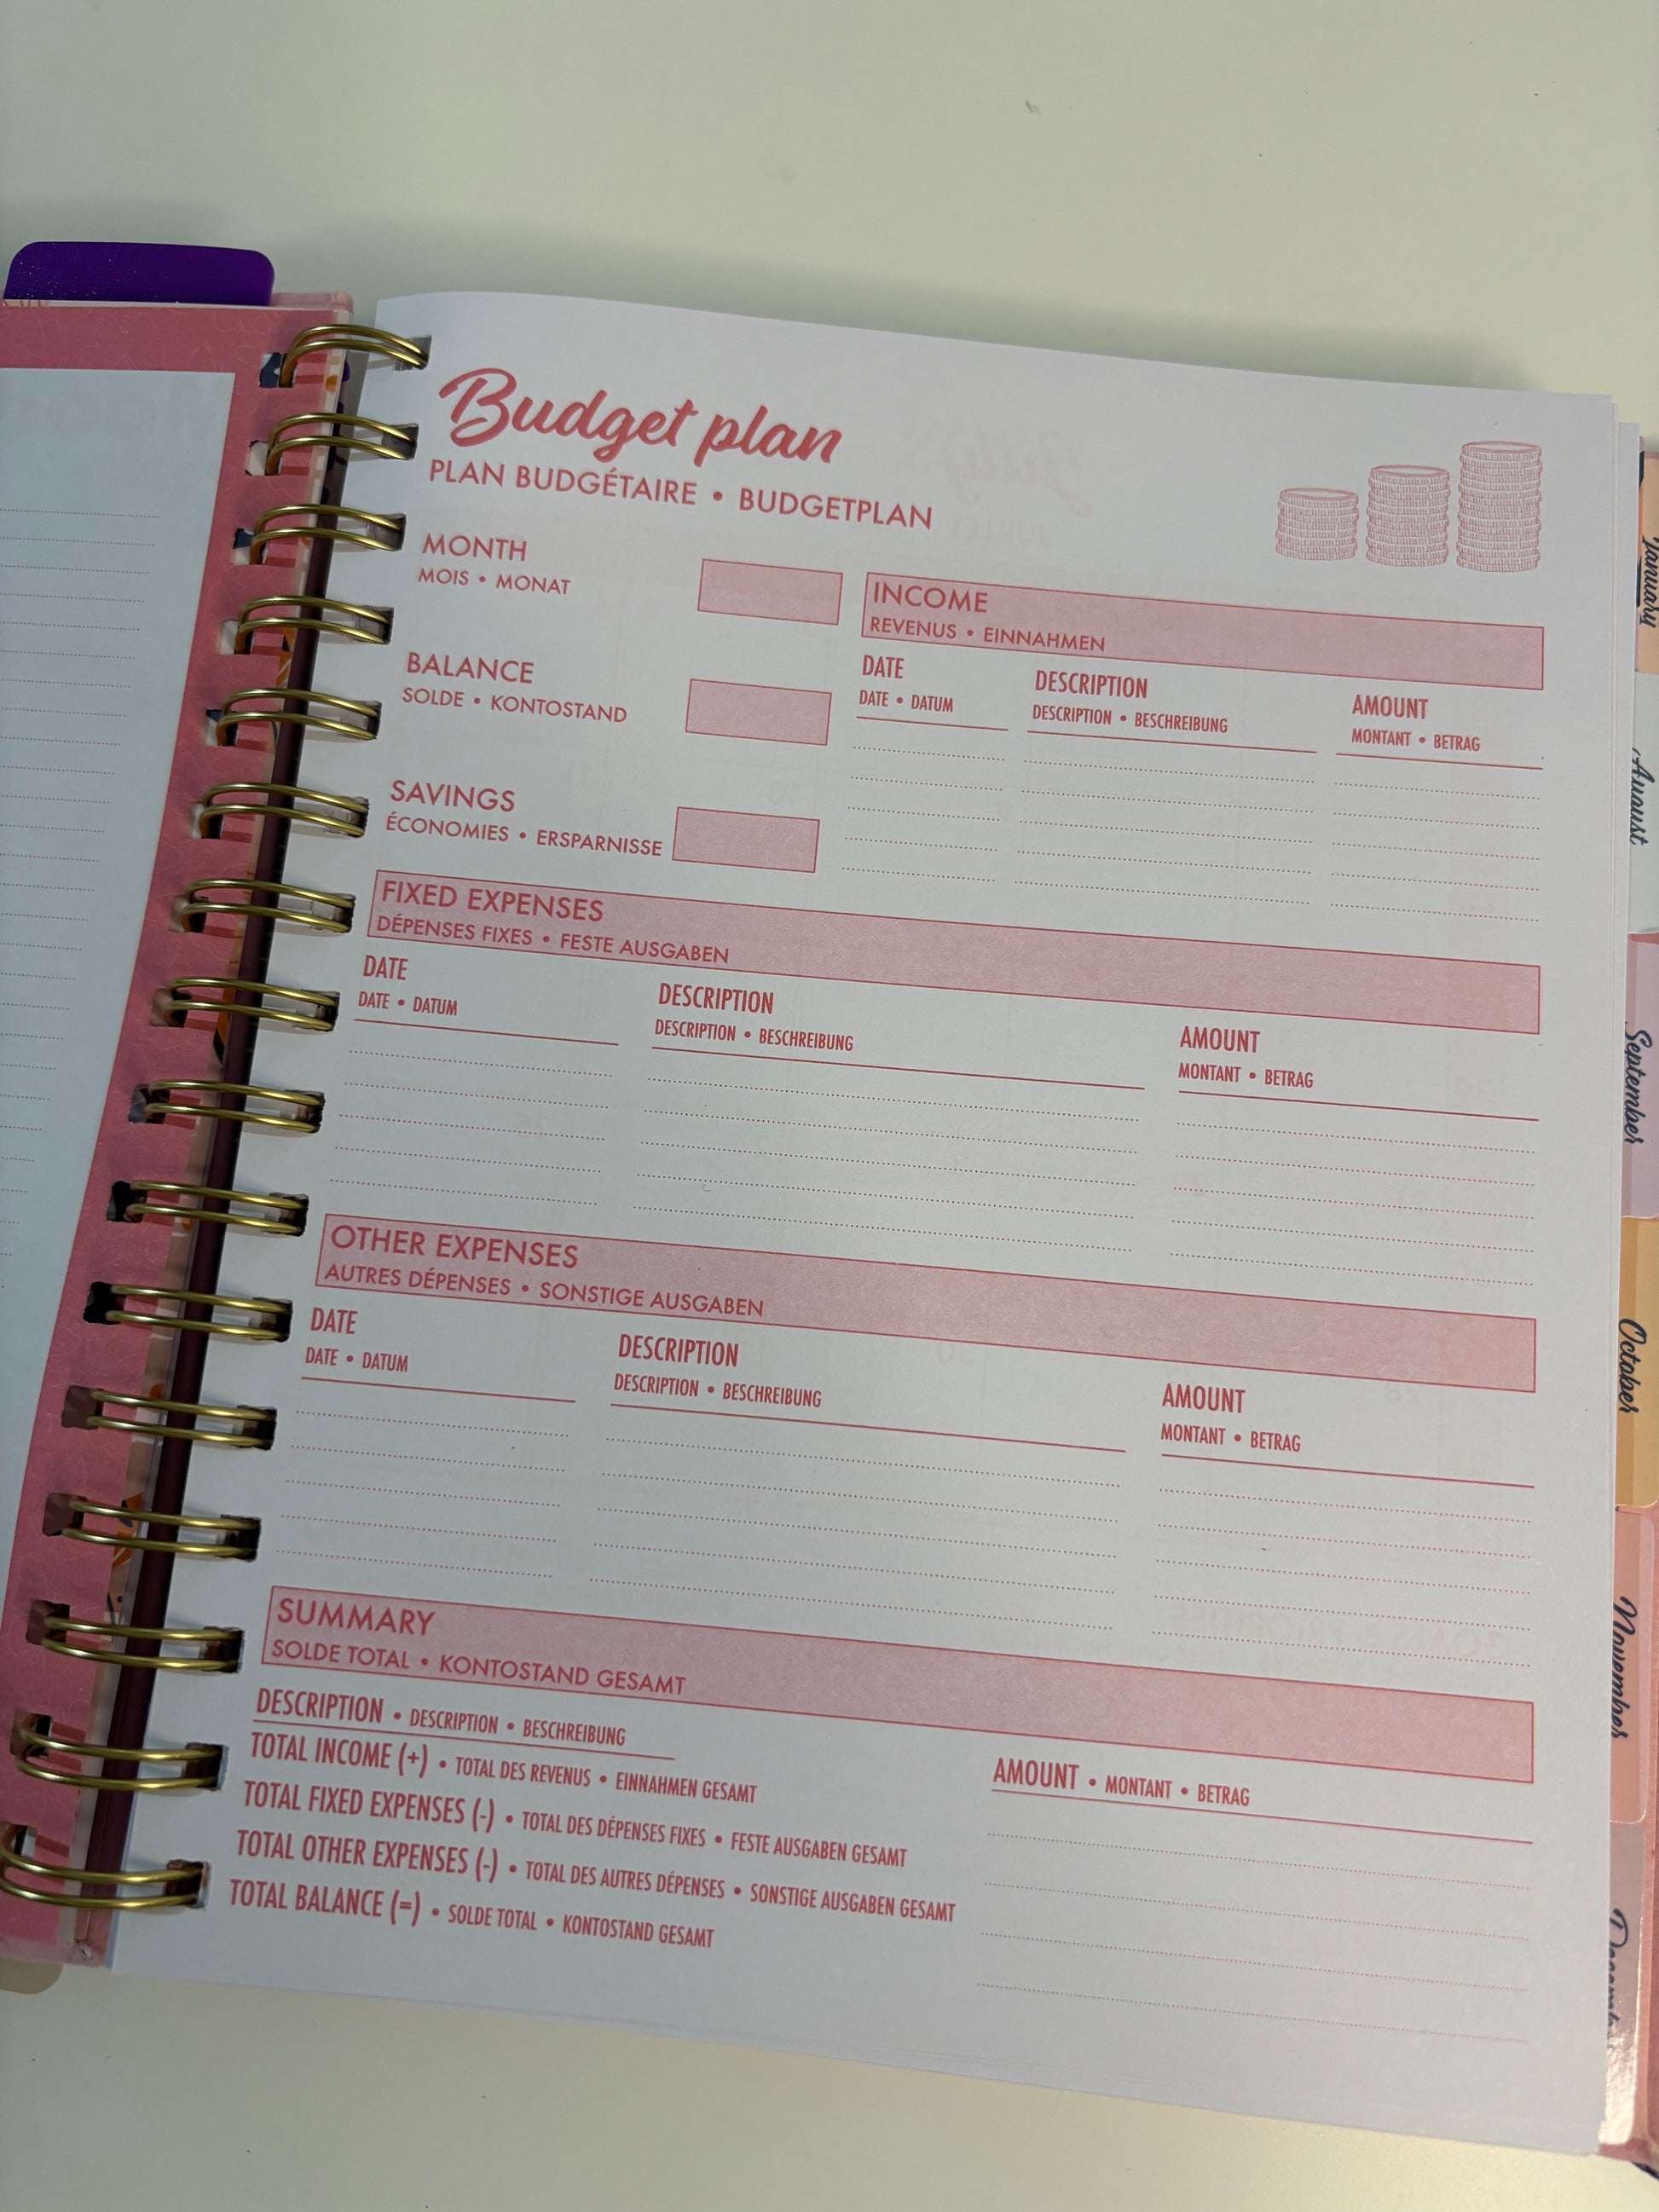 Budget plan
PLAN BUDGÉTAIRE • BUDGETPLAN
MONTH
MOIS • MONAT
BALANCE
SOLDE • KONTOSTAND
SAVINGS
ÉCONOMIES • ERSPARNISSE
INCOME
REVENUS • EINNAHMEN
DATE
DATE • DATUM
DESCRIPTION
DESCRIPTION • BESCHREIBUNG
AMOUNT
MONTANT • BETRAG
FIXED EXPENSES
DÉPENSES FIXES • FESTE AUSGABEN
DATE
DATE • DATUM
DESCRIPTION
DESCRIPTION • BESCHREIBUNG
AMOUNT
MONTANT • BETRAG
OTHER EXPENSES
AUTRES DÉPENSES • SONSTIGE AUSGABEN
DATE
DATE • DATUM
DESCRIPTION
DESCRIPTION • BESCHREIBUNG
AMOUNT
MONTANT • BETRAG
SUMMARY
SOLDE TOTAL • KONTOSTAND GESAMT
DESCRIPTION • DESCRIPTION • BESCHREIBUNG
AMOUNT • MONTANT • BETRAG
TOTAL INCOME (+) • TOTAL DES REVENUS • EINNAHMEN GESAMT
TOTAL FIXED EXPENSES (-) • TOTAL DES DÉPENSES FIXES • FESTE AUSGABEN GESAMT
TOTAL OTHER EXPENSES (-) • TOTAL DES AUTRES DÉPENSES • SONSTIGE AUSGABEN GESAMT
TOTAL BALANCE (=) • SOLDE TOTAL • KONTOSTAND GESAMT
January
August
September
October
November